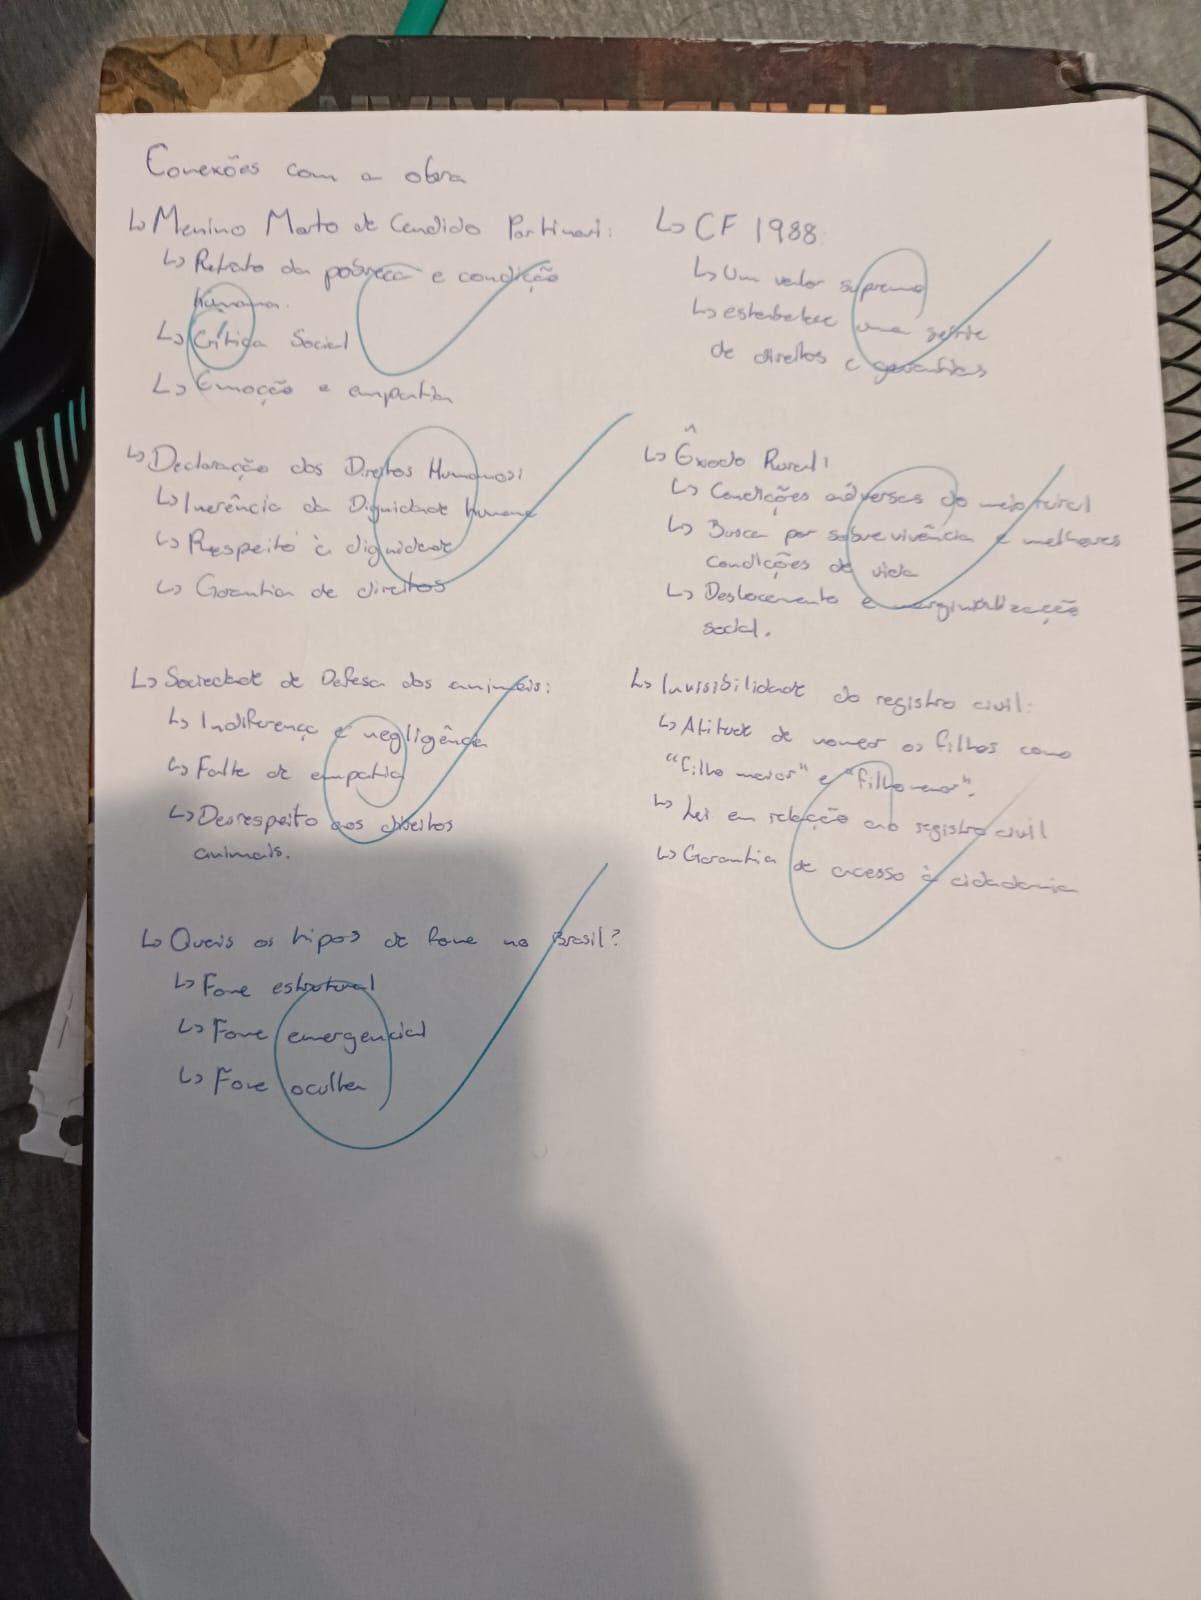 Conexões com a obra
↳ Menino Morto de Candido Portinari:
↳ Retrato da pobreza e condição
humana.
↳ Crítica Social
↳ Emoção e empatia
↳ Declaração dos Direitos Humanos:
↳ Inerência da Dignidade humana
↳ Respeito à dignidade
↳ Garantia de direitos
↳ Sociedade de Defesa dos animais:
↳ Indiferença e negligência
↳ Falta de empatia
↳ Desrespeito aos direitos
animais.
↳ Quais os tipos de fome no Brasil?
↳ Fome estrutural
↳ Fome emergencial
↳ Fome oculta
↳ CF 1988
↳ Um valor supremo
↳ estabelece uma série
de direitos e garantias
↳ Êxodo Rural:
↳ Condições adversas do meio rural
↳ Busca por sobrevivência e melhores
condições de vida
↳ Deslocamento e marginalização
social.
↳ Invisibilidade do registro civil:
↳ Atitude de nomear os filhos como
"filho maior" e "filho menor".
↳ Lei em relação ao registro civil
↳ Garantia de acesso à cidadania